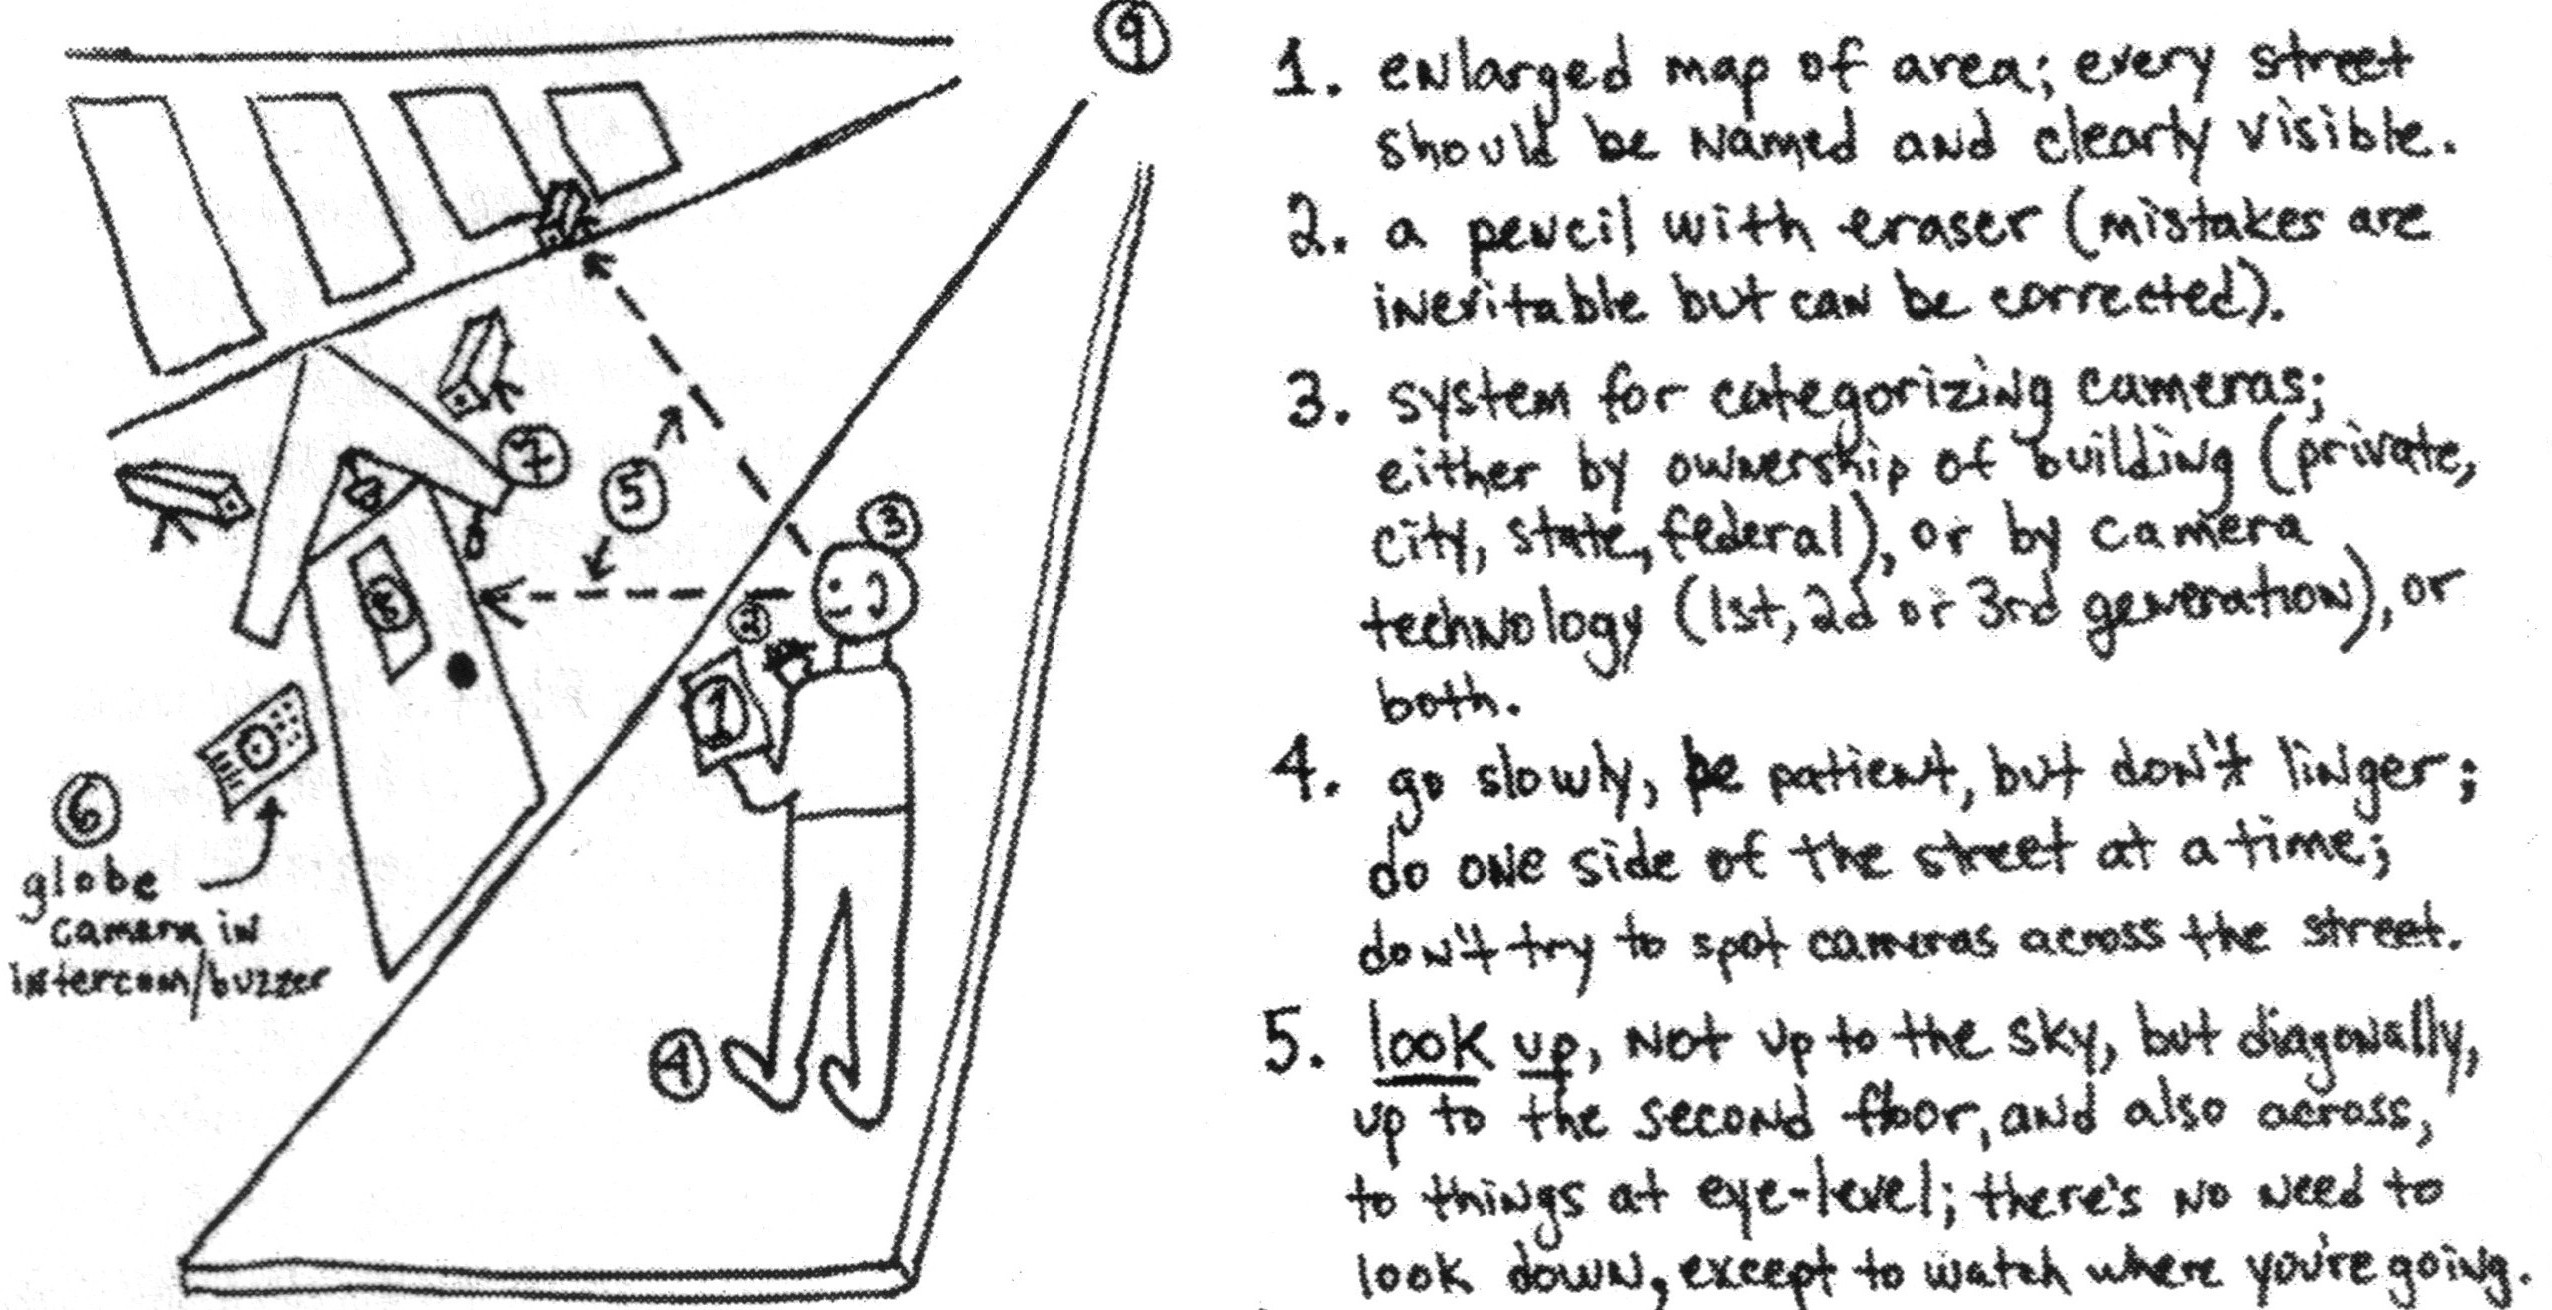 9
7
5
3
2
1
8
6
globe
camera in
intercom/buzzer
4
1. enlarged map of area; every street
should be named and clearly visible.
2. a pencil with eraser (mistakes are
inevitable but can be corrected).
3. system for categorizing cameras;
either by ownership of building (private,
city, state, federal), or by camera
technology (1st, 2d or 3rd generation), or
both.
4. go slowly, be patient, but don't linger;
do one side of the street at a time;
don't try to spot cameras across the street.
5. look up, not up to the sky, but diagonally,
up to the second floor, and also across,
to things at eye-level; there's no need to
look down, except to watch where you're going.